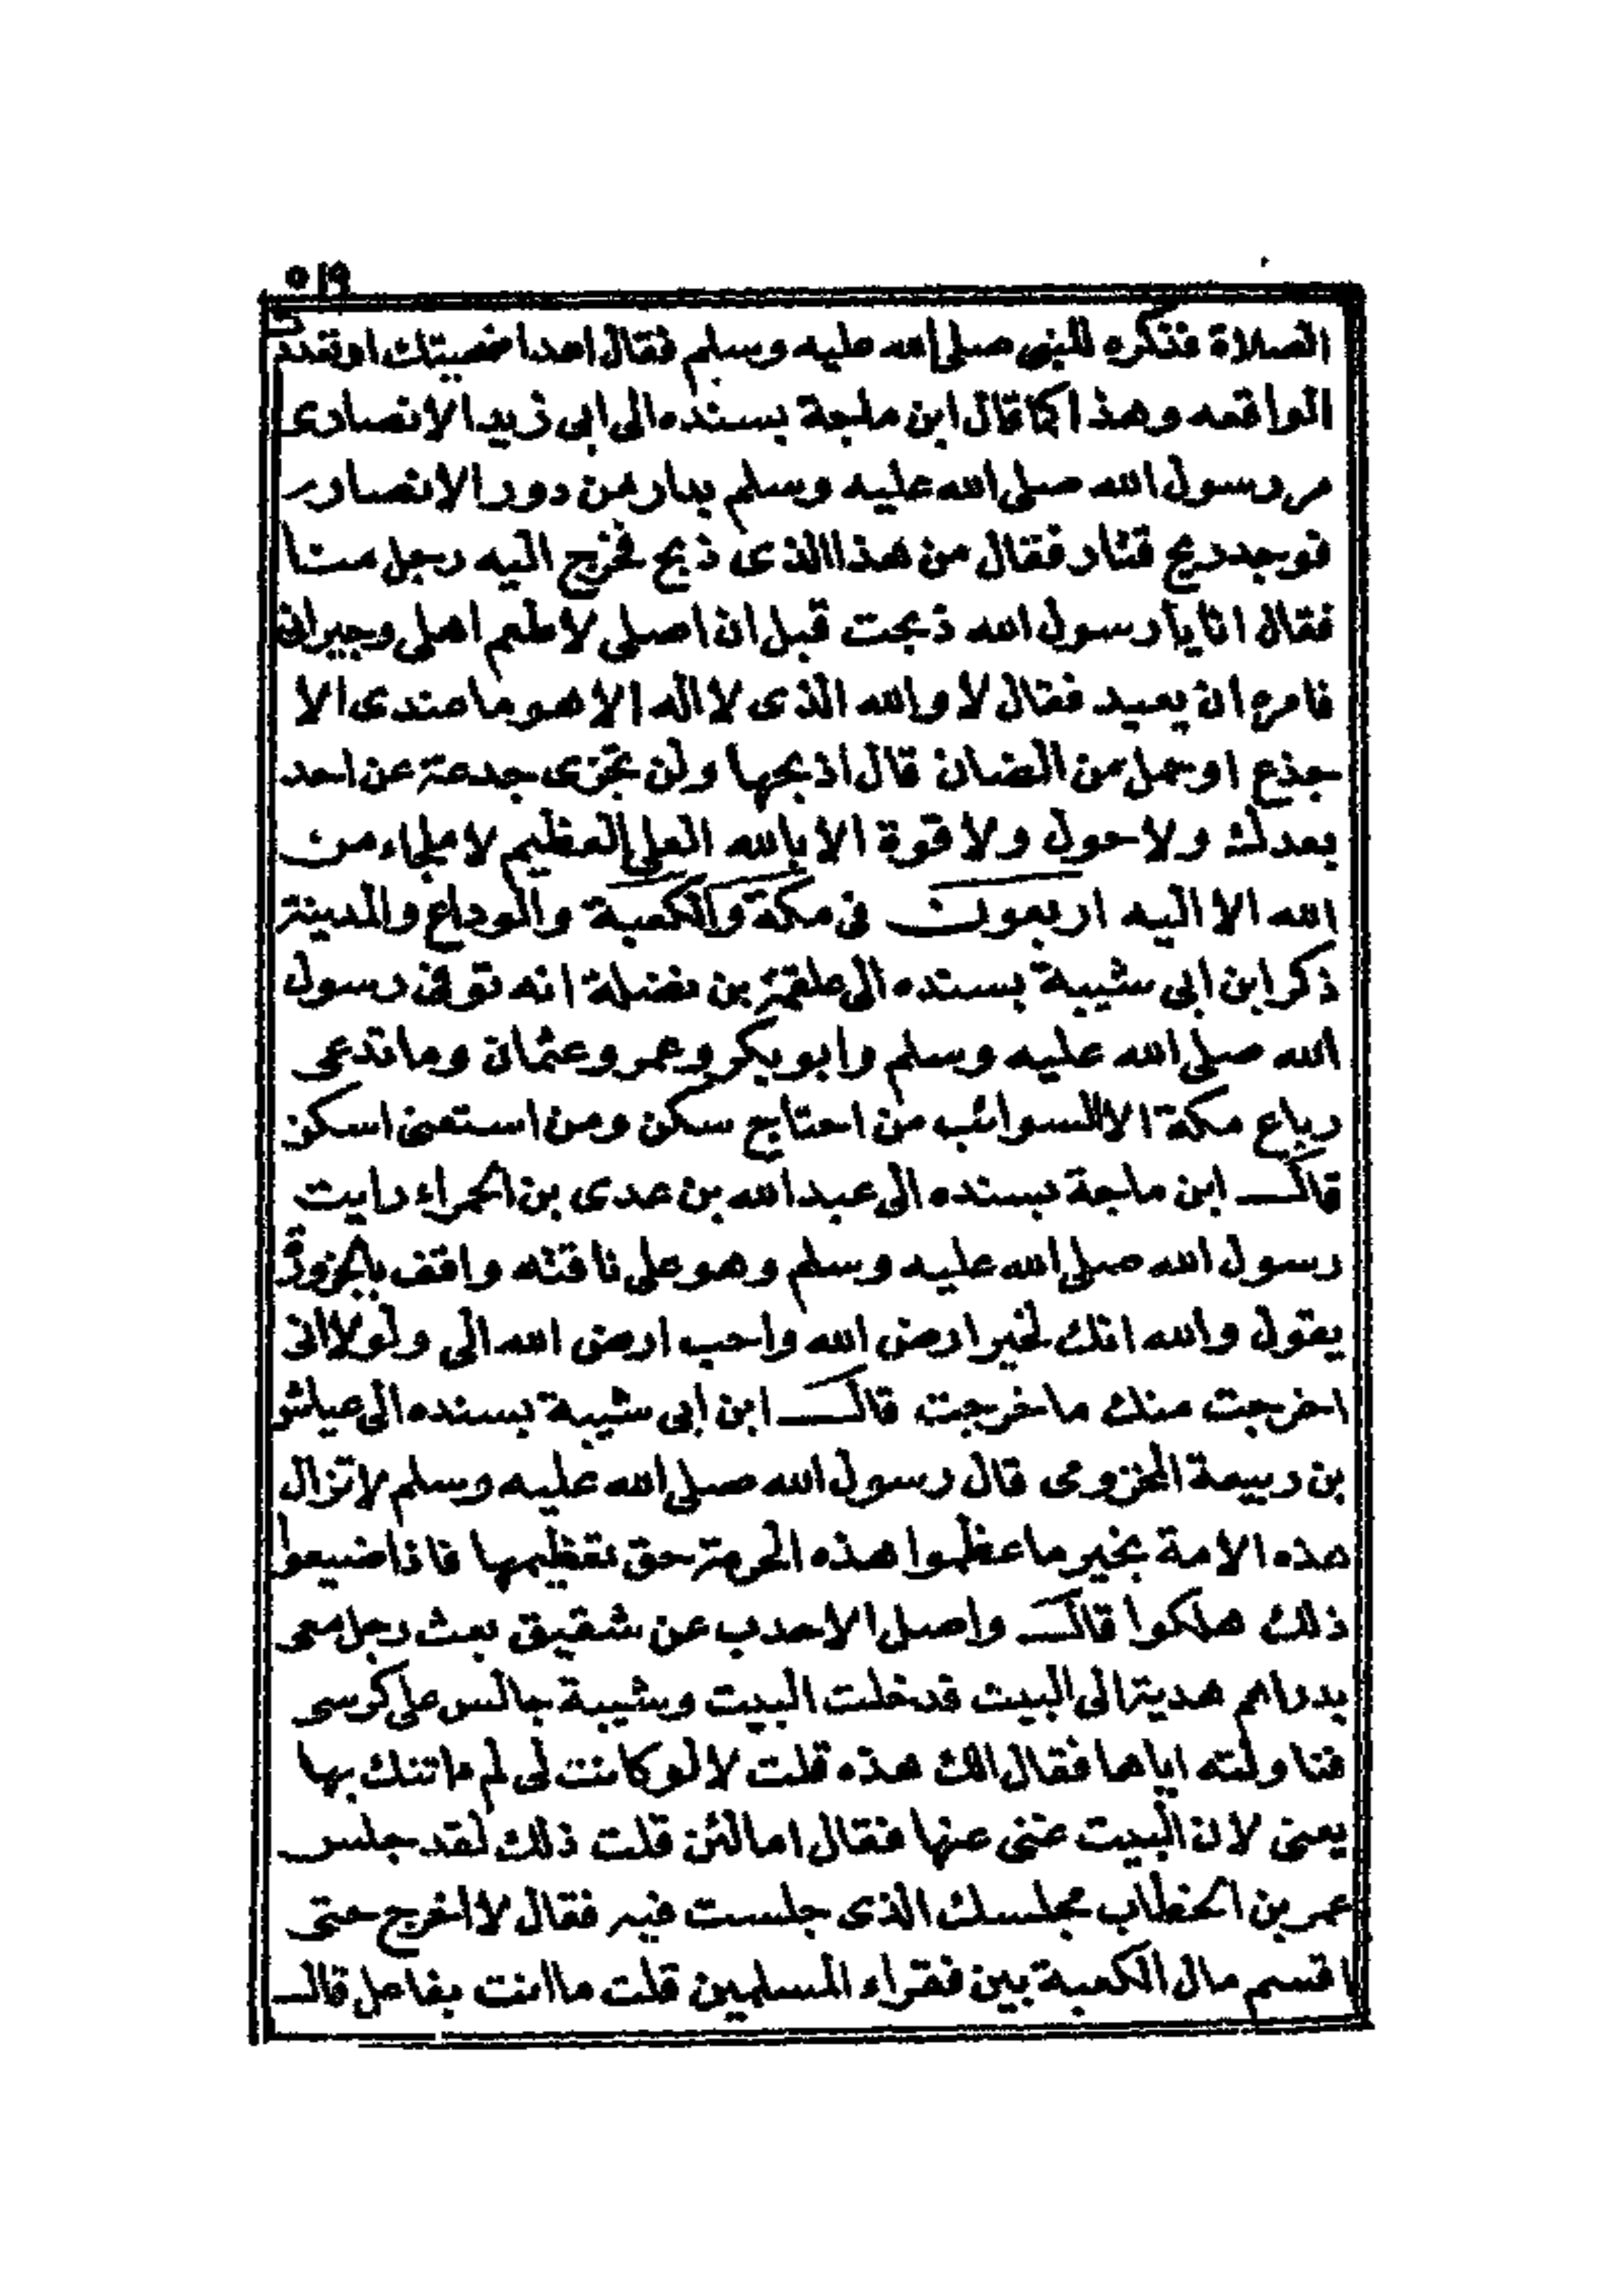 ٥١٩
الصلاة فذكره للنبي صلى الله عليه وسلم فقال اعد اضحيتك او تعدد
الواقعه وهذا كما قال ابن ماجة بسنده الى ابى زيد الانصارى
مر رسول الله صلى الله عليه وسلم بدار من دور الانصار
فوجد ريح قتار فقال من هذا الذى ذبح فخرج اليه رجل منا
فقال انا يا رسول الله ذبحت قبل ان اصلى لاطعم اهلى وجيرانى
فامره ان يعيد فقال لا والله الذى لا اله الا هو ما عندى الا
جذع او حمل من الضان قال اذبحها ولن تجزى جدعة عن احد
بعدك ولا حول ولا قوة الا بالله العلى العظيم لا ملجاء من
الله الا اليه اربعون فى مكة والكعبة والوداع والمدينة
ذكر ابن ابى شيبة بسنده الى علقمة بن نضلة انه توفى رسول
الله صلى الله عليه وسلم وابو بكر وعمر وعثمان وما تدعى
رباع مكة الا السوائب من احتاج سكن ومن استغنى اسكن
قال ابن ماجة بسنده الى عبد الله بن عدى بن الحمراء رايت
رسول الله صلى الله عليه وسلم وهو على ناقته واقف بالحزورة
يقول والله انك لخير ارض الله واحب ارض الله الى ولولا انى
اخرجت منك ما خرجت قال ابن ابى شيبة بسنده الى عياش
بن ربيعة المخزومى قال رسول الله صلى الله عليه وسلم لا تزال
هذه الامة بخير ما عظموا هذه الحرمة حق تعظيمها فاذا ضيعوا
ذلك هلكوا قال واصل الاحدب عن شقيق بعث رجل معى
بدراهم هدية الى البيت فدخلت البيت وشيبة جالس على كرسى
فناولته اياها فقال الك هذه قلت لا لو كانت لى لم ماتنك بها
يعنى لان البيت غنى عنها فقال اما لئن قلت ذلك لقد جلس
عمر بن الخطاب مجلسك الذى جلست فيه فقال لا اخرج حتى
اقسم مال الكعبة بين فقراء المسلمين قلت ما انت بفاعل قال